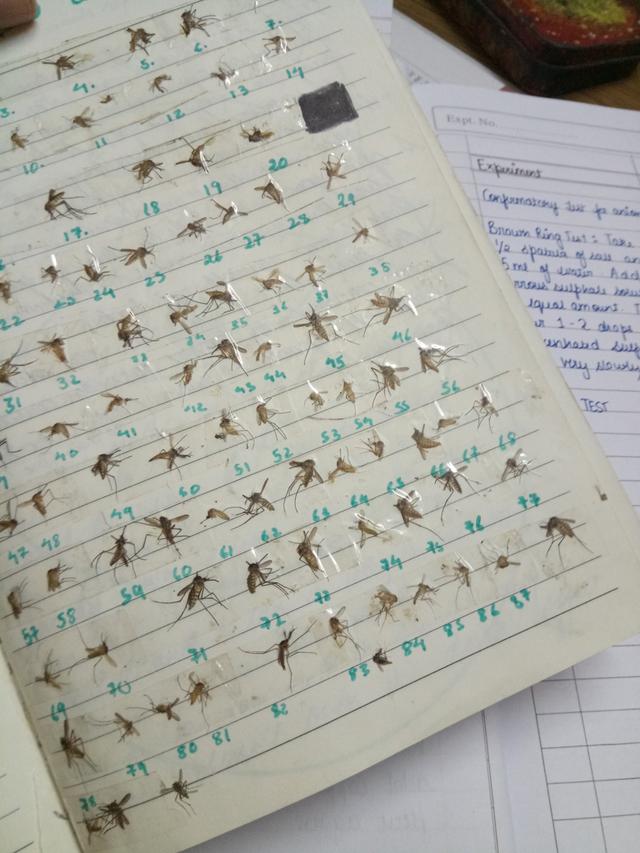 3. 4. 5. 6. 7.
10. 11 12 13 14
17. 18 19 20
22 23 24 25 26 27 28 29
31 32 33 34 35 36 37 38
40 41 42 43 44 45 46
47 48 49 50 51 52 53 54 55 56
57 58 59 60 61 62 63 64 65 66 67 68
69 70 71 72 73 74 75 76 77
78 79 80 81 82 83 84 85 86 87
Expt. No.
Experiment
Confirmatory test for
Brown Ring Test: Take
1/2 spatula of salt
5 ml of water. Add
sulphate
equal amount.
1-2 drops
very slowly
TEST